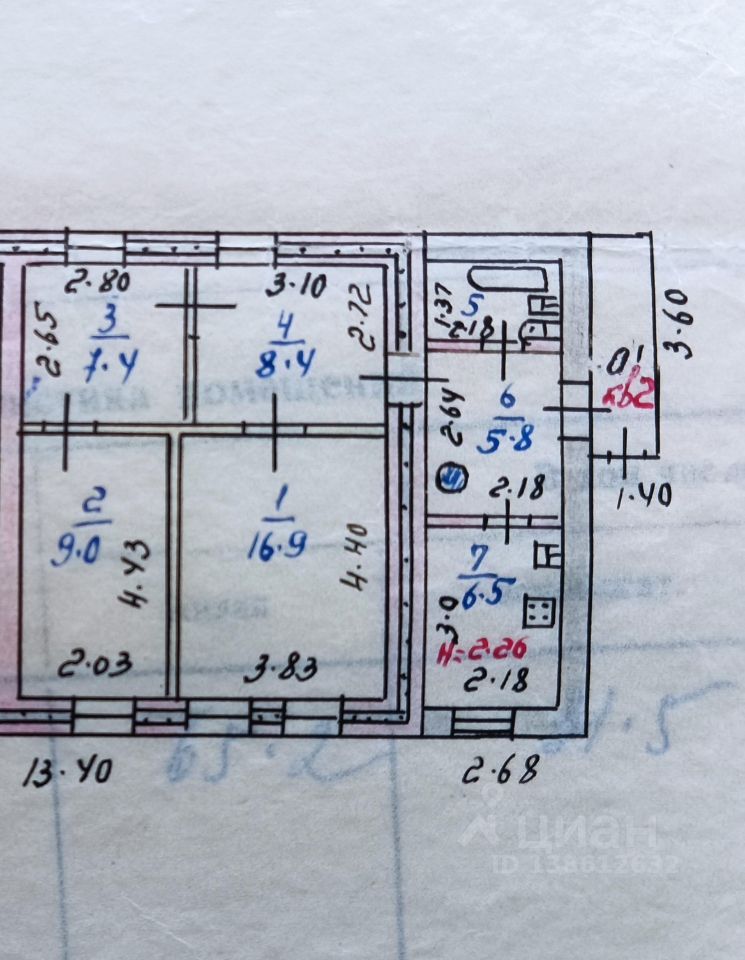 2.80
3.10
2.65
3
7.4
4
8.4
2.72
1.37
5
2.18
3.60
0!
кв2
6
5.8
2.64
2.18
1.40
2
9.0
4.43
2.03
1
16.9
4.40
3.83
7
6.5
3.0
H=2.26
2.18
13.40
65.2
2.68
31.5
помещений
циан
ID 138612632